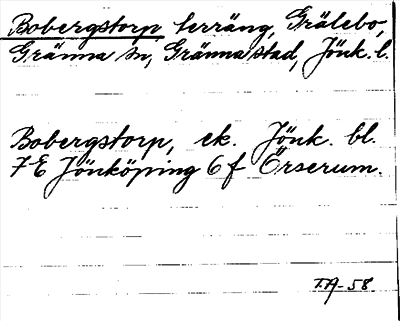 Bobergstorp terräng, Grälebo,
Gränna sn, Gränna stad, Jönk. l.
Bobergstorp, ek. Jönk. bl.
7 E Jönköping 6 f Örserum.
T.A-58